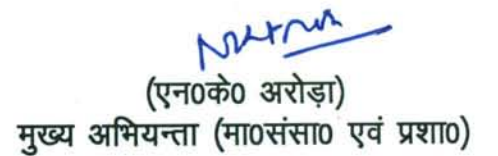 (एन0के0 अरोड़ा)
मुख्य अभियन्ता (मा0संसा0 एवं प्रशा0)